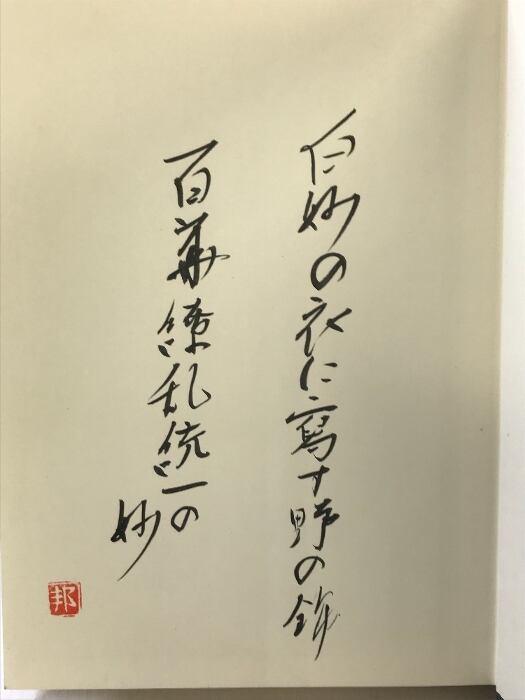 白妙の衣に寫す野の錦
百華繚乱統一の妙
邦